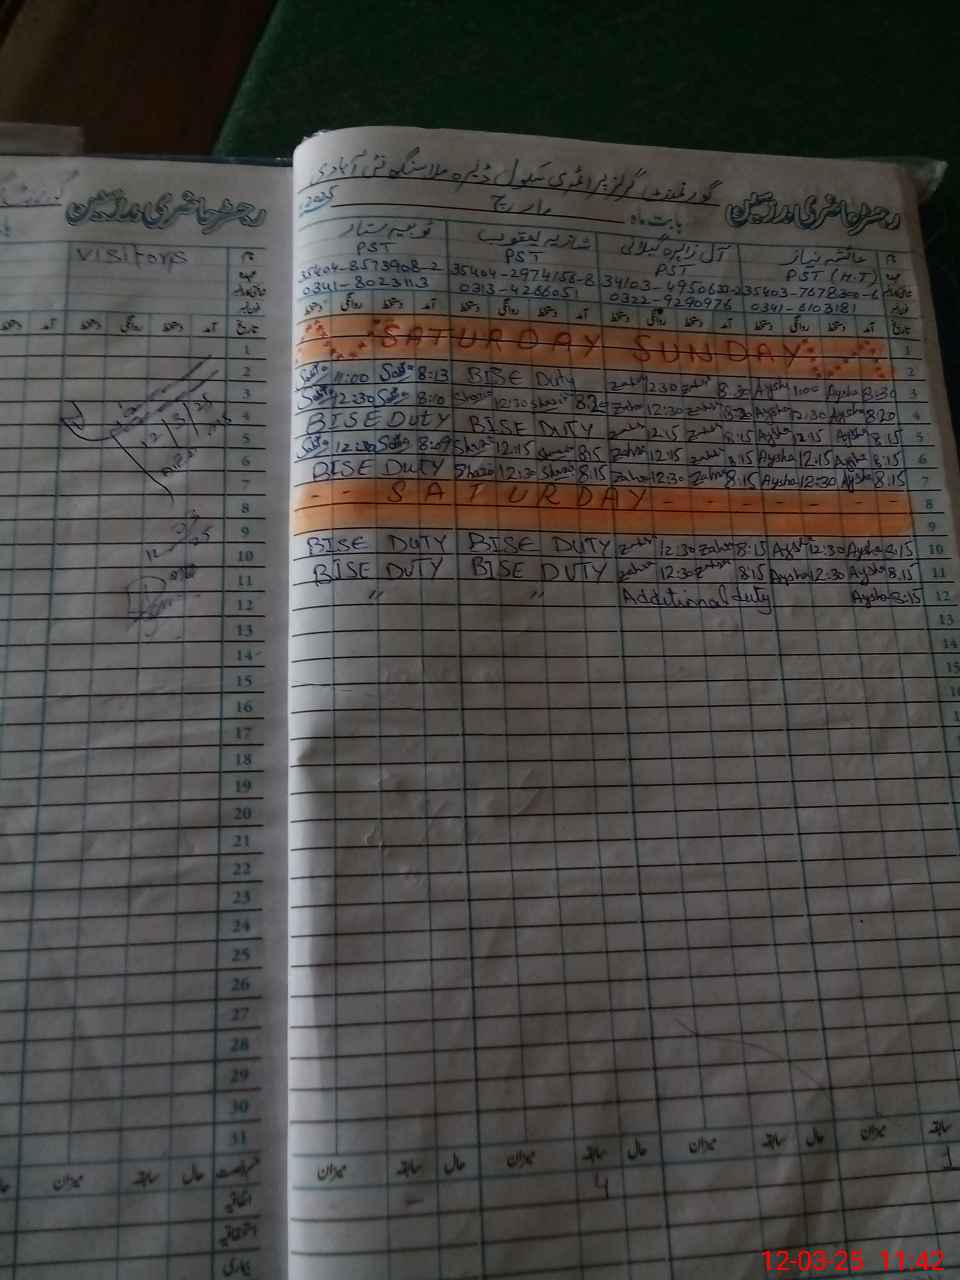 گورنمنٹ گرلز پرائمری سکول ڈیرہ ملاسنگھ نئی آبادی
رجسٹر حاضری مدرسین
بابت ماہ مارچ 2025
رجسٹر حاضری مدرسین
visitors
عائشہ نیاز
PST (H.T)
شازیہ یعقوب
PST
35404-2974156-8
0313-4266051
PST
34103-
0322-9290976
ستار
PST
35404-8573908-2
0341-8023113
35403-
0341-6103181
تاریخ آمد دستخط روانگی دستخط
1 SATURDAY SUNDAY
2
3 11:00 8:13 BISE Duty Zahra 12:30 Zahra 8:30 Aysha 1:00 Aysha 8:30
4 12:30 8:10 12:30 8:20 Zahra 12:30 Zahra 8:20 Aysha 12:30 Aysha 8:20
5 BISE DUTY BISE DUTY Zahra 12:15 Zahra 8:15 Aysha 12:15 Aysha 8:15
6 12:30 8:09 12:15 8:15 Zahra 12:15 Zahra 8:15 Aysha 12:15 Aysha 8:15
7 BISE DUTY 12:30 8:15 Zahra 12:30 Zahra 8:15 Aysha 12:30 Aysha 8:15
8 - - SATURDAY - - - - - -
9
10 BISE DUTY BISE DUTY Zahra 12:30 Zahra 8:15 Aysha 12:30 Aysha 8:15
11 BISE DUTY BISE DUTY Zahra 12:30 Zahra 8:15 Aysha 12:30 Aysha 8:15
12 " " Additional duty Aysha 8:15
13
14
15
16
17
18
19
20
21
22
23
24
25
26
27
28
29
30
31
12/3/25
میزان سابقہ حال میزان سابقہ حال میزان سابقہ حال میزان سابقہ
- 4 1
اتفاقیہ
استحقاقیہ
بیماری
12-03-25 11:42